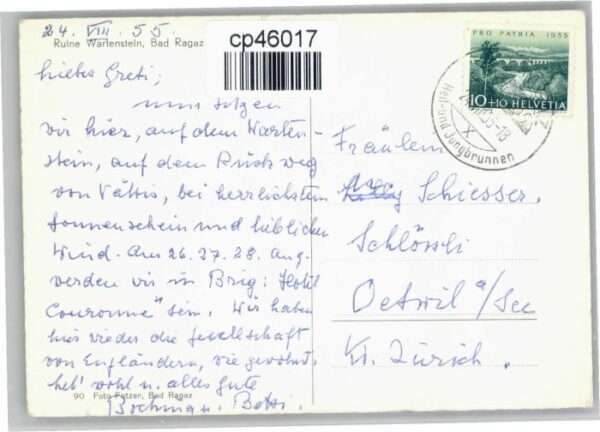 24. VIII. 55.
Ruine Wartenstein, Bad Ragaz
cp46017
PRO PATRIA 1955
10+10 HELVETIA
Heil- und Jungbrunnen
Liebes Greti;
nun sitzen
wir hier, auf dem Warten-
stein, auf dem Rückweg
von Vättis, bei herrlichstem
Sonnenschein und lieblichem
Wind. Am 26. 27. 28. Aug.
werden wir in Brig: Hotel
Couronne" sein. Wir haben
hier wieder die Gesellschaft
von Engländern, wie gewohnt.
Leb' wohl u. alles Gute
90 Foto Fetzer, Bad Ragaz
Fräulein
Schiesser,
Schlössli
Oetwil a/See
Kt. Zürich.